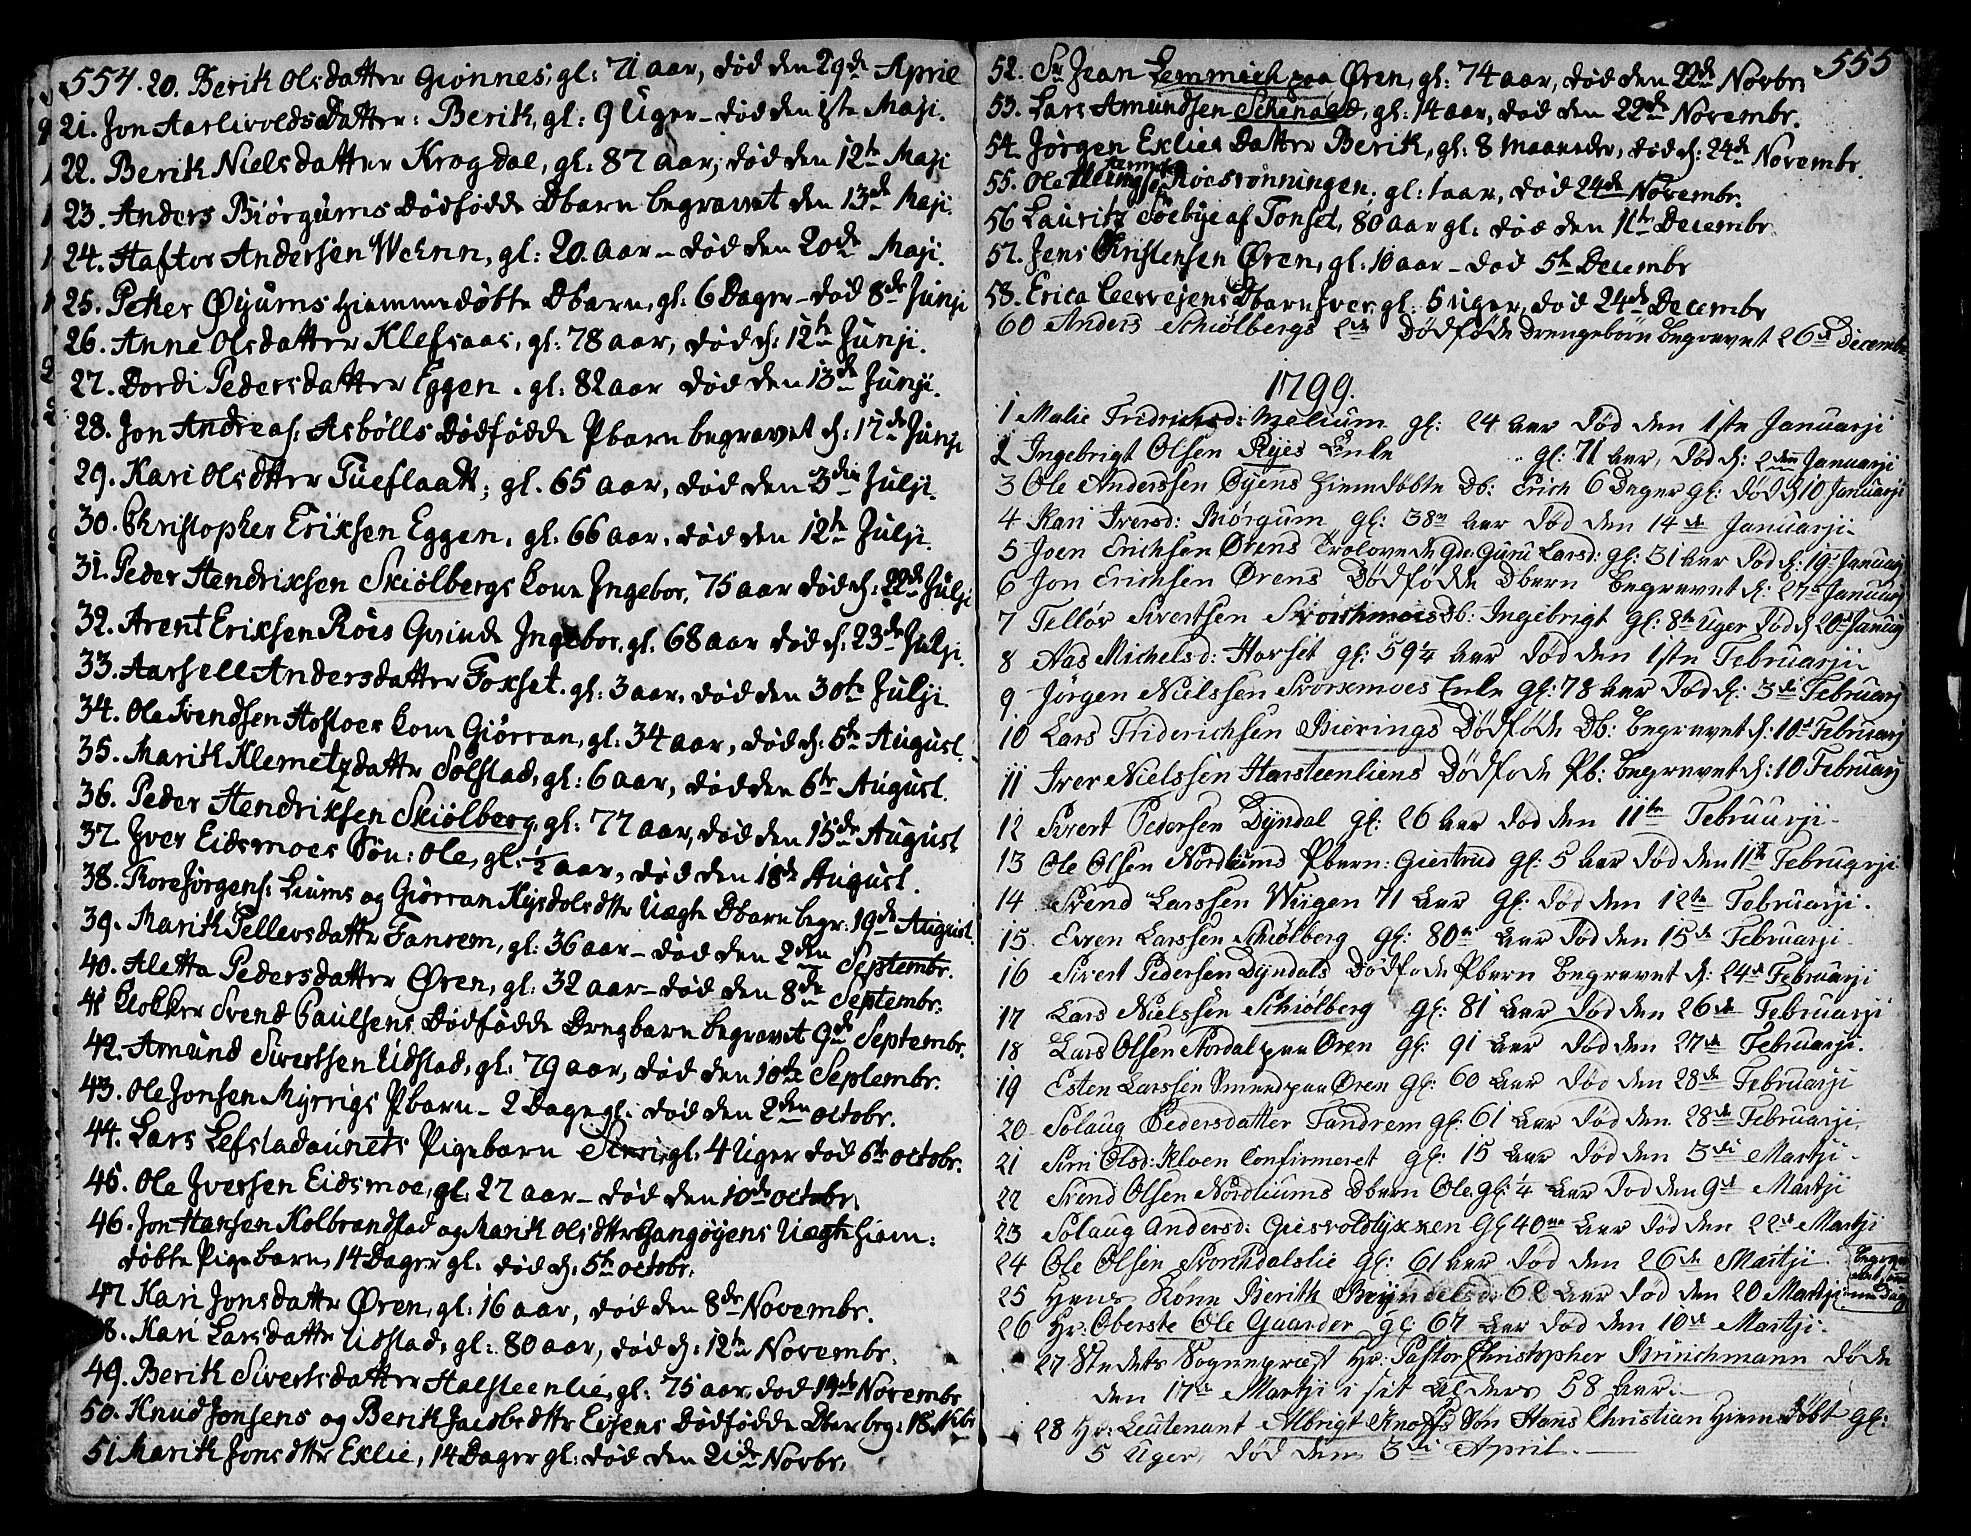 554. 20. Berik Olsdatter Giønnes, gl: 71 aar, død den 29de April
21. Jon Aarlivolds Datter: Berik, gl: 9 Uger – død den 1ste Maji.
22. Berik Nielsdatter Krogdal, gl: 87 aar, død den 12te Maji
23. Anders Biørgums dødfødde Dbarn begravet den 13de Maji.
24. Haftor Andersen Wærnn, gl: 20 aar – død den 20de Maji.
25. Peter Øyums hiemmedøbte Dbarn, gl: 6 Dager – død 8de Junji
26. Anne Olsdatter Klefsaas, gl: 78 aar, død d: 12te Junji.
27. Dordi Pedersdatter Eggen. gl: 82 aar død den 13de Junji.
28. Jon Andreas: Asbølls dødfødde Pbarn begravet d: 17de Junji
29. Kari Olsdtter Tueflaatt; gl. 65 aar, død den 3die Julji
30. Christopher Eriksen Eggen. gl: 66 aar. død den 12te Julji.
31. Peder Hendriksen Skiølbergs kone Ingebor, 75 aar død d: 22de Julji
32. Arent Eriksen Roes Qvinde Ingebor, gl. 68 aar død d: 23de Julji.
33. Aarsell Andersdatter Foxset. gl: 3 aar, død den 30te Julji
34. Ole Svendsen Hofloes kone Giørran, gl: 34 aar, død d: 5te August.
35. Marik Klemetzdattr Solstad, gl: 6 aar, død den 6te August.
36. Peder Hendriksen Skiølberg, gl: 77 aar, død den 15de August
37. Iver Eidsmoes Søn: Ole, gl: ½ aar, død den 18de August.
38. Rore Jørgens: Liums og Giørran Kysdolsdttr Uægte Dbarn begr: 19de August.
39. Marik Tellevsdattr Fanrem, gl: 36 aar – død den 2den Septembr.
40. Aletta Pedersdatter Øren, gl: 32 aar – død den 8de Septembr:
41 Klokker Svend Paulsens Dødfødde Drengbarn begravet 9de Septembr.
42. Amund Sivertsen Udstad, gl: 79 aar, død den 10te Septembr.
43. Ole Jonsen Myrrigs Pbarn – 2 Dage gl: død den 2den Octobr.
44. Lars Lefstadaunets Pigebarn Siri, gl: 4 Uger død 6te Octobr.
45. Ole Iversen Eidsmoe, gl: 27 aar – død den 10de Octobr.
46. Jon Hansen Kolbrandstad og Marik Olsdttr Gangøyens Uægte hiem:
døbte Pigebarn, 14 Dager gl. død d: 5te Octobr.
47 Kari Jonsdattr Øren, gl: 16 aar, død den 8de Novembr.
48. Kari Larsdattr Udstad, gl: 80 aar, død d: 12te Novembr.
49. Berik Sivertsdatter Halsteenlie, gl: 75 aar, død 14de Novembr
50. Knud Jonsens og Berik Jacobsdttr Eysens Dødfødde Dbar beg: 18 Nvbr
51 Marik Jonsdttr Exlie, 14 Dager gl: død den 21de Novbr.
555
52. Sr Jean Lemmich paa Øren, gl: 74 aar, død den 22de Novbr
53. Lars Amundsen Schenald, gl: 14 aar, død den 22de Novembr.
54. Jørgen Exlies Datter Berik, gl: 8 maaneder, død d: 24de Novembr.
55. Ole Roesrønningen, gl: 1 aar, død 24de Novembr.
56 Lauritz Søebye af Tonset, 80 aar gl: død den 11te Decembr.
57. Jens Christensen Øren, gl. 10 aar – død 5te Decembr
58. Erica Leervejens Dbarn Iver, gl: 5 uger, død 24de Decembr
60 Anders Schiølbergs 2de Dødfødde Drengebørn begravet 26de Decembr
1799.
1 Malie Fridrichsd: Mælium gl: 24 aar død den 1ste Januarji
2 Ingebrigt Olsen Ryes Enke gl: 71 aar, død d: 2den Januarji
3 Ole Anderssen Øyens Hiemdøbte Db: Erich 6 Dager gl: død d 10 Januarji
4 Kari Iversd: Biørgum gl: 38 aar død den 14de Januarji
5 Joen Erichsen Ørens Trolovede Qde: Guru Larsd: gl: 31 aar død d: 19 Januarj
6 Jon Erichsen Ørens Dødfødde Dbarn begravet d: 27de Januarj
7 Telløv Sivertsen Svorchmoes Db: Ingebrigt gl: 8te Uger død d 20de Januarj
8 Aas Michelsd: Hovset gl: 59¼ aar død den 1ste Februarji
9 Jørgen Nielssen Svorkmoes Enke gl: 78 aar død d: 3die Februarj
10 Lars Friderichsen Bierings Dødføde Db: begravet d: 10de Februarj
11 Iver Nielssen Harsteenliens Dødføde Pb: begravet d: 10 Februarj
12 Sivert Pedersen Dyndal gl: 26 aar død den 11te Februarji
13 Ole Olsen Nordliums Pbarn: Giertrud gl: 5 aar død den 11te Februarji
14 Svend Larssen Wiigen 71 aar gl: død den 12te Februarji.
15. Even Larssen Schiølberg gl: 80 aar død den 15de Februarji
16 Sivert Pedersen Dyndals Dødføde Pbarn begravet d: 24de Februarji
17 Lars Nielssen Schiølberg gl: 81 aar død den 26de Februarji
18 Lars Olsen Nordal paa Øren gl: 91 aar død den 27de Februarji.
19 Esten Larssen Smeed paa Øren gl: 60 aar død den 28de Februarji
20 Solaug Pedersdatter Fandrem gl: 61 aar død den 28de Februarji.
21 Siri Olsd: Kloen Confirmeret gl: 15 aar død den 3di Martji
22 Svend Olsen Nordliums Dbarn Ole gl: ¼ aar død den 9de Martji
23 Solaug Andersd: Giesvoldlykken gl 40 aar død den 22de Martji
24 Ole Olsen Svorchdalslie gl: 61 aar død den 26de Martji.
25 Hans kone Berith Bryndelsd: 62 aar død den 20 Martji
26 Hr: Oberste Ole Gaarder gl: 67 aar død den 10de Martji.
27 Stedets Sogneprest Hr: Pastor Christopher Brinchmann døde
den 17de Martji i sit alders 58 aar.
28 Hr: Leutenant Albrigt Knoffs Søn Hans Christian Hiemdøbt gl:
5 Uger, død den 3di April.